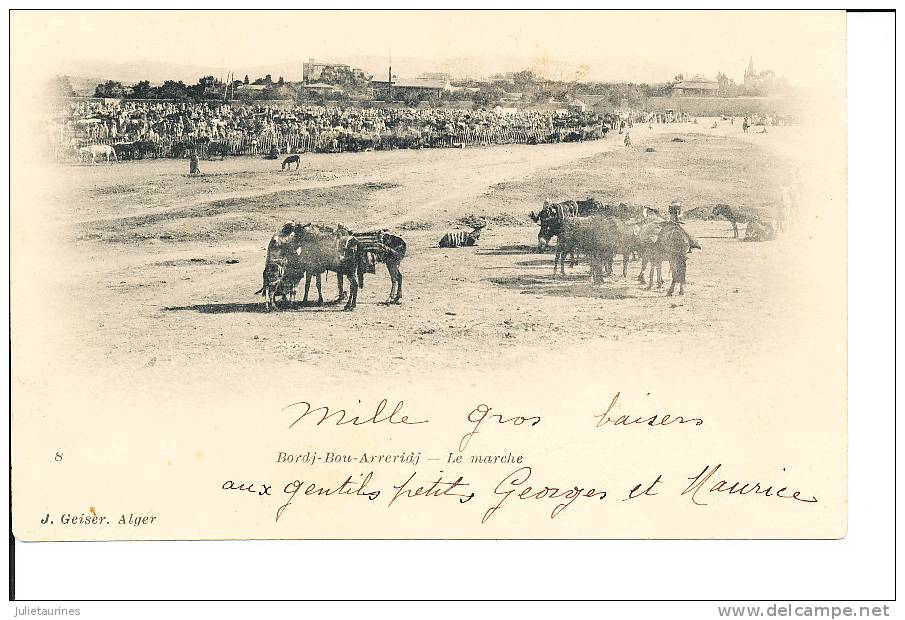 Mille gros baisers
8
Bordj-Bou-Arreridj — Le marche
aux gentils petits Georges et Maurice
J. Geiser. Alger
julietaurines
www.delcampe.net